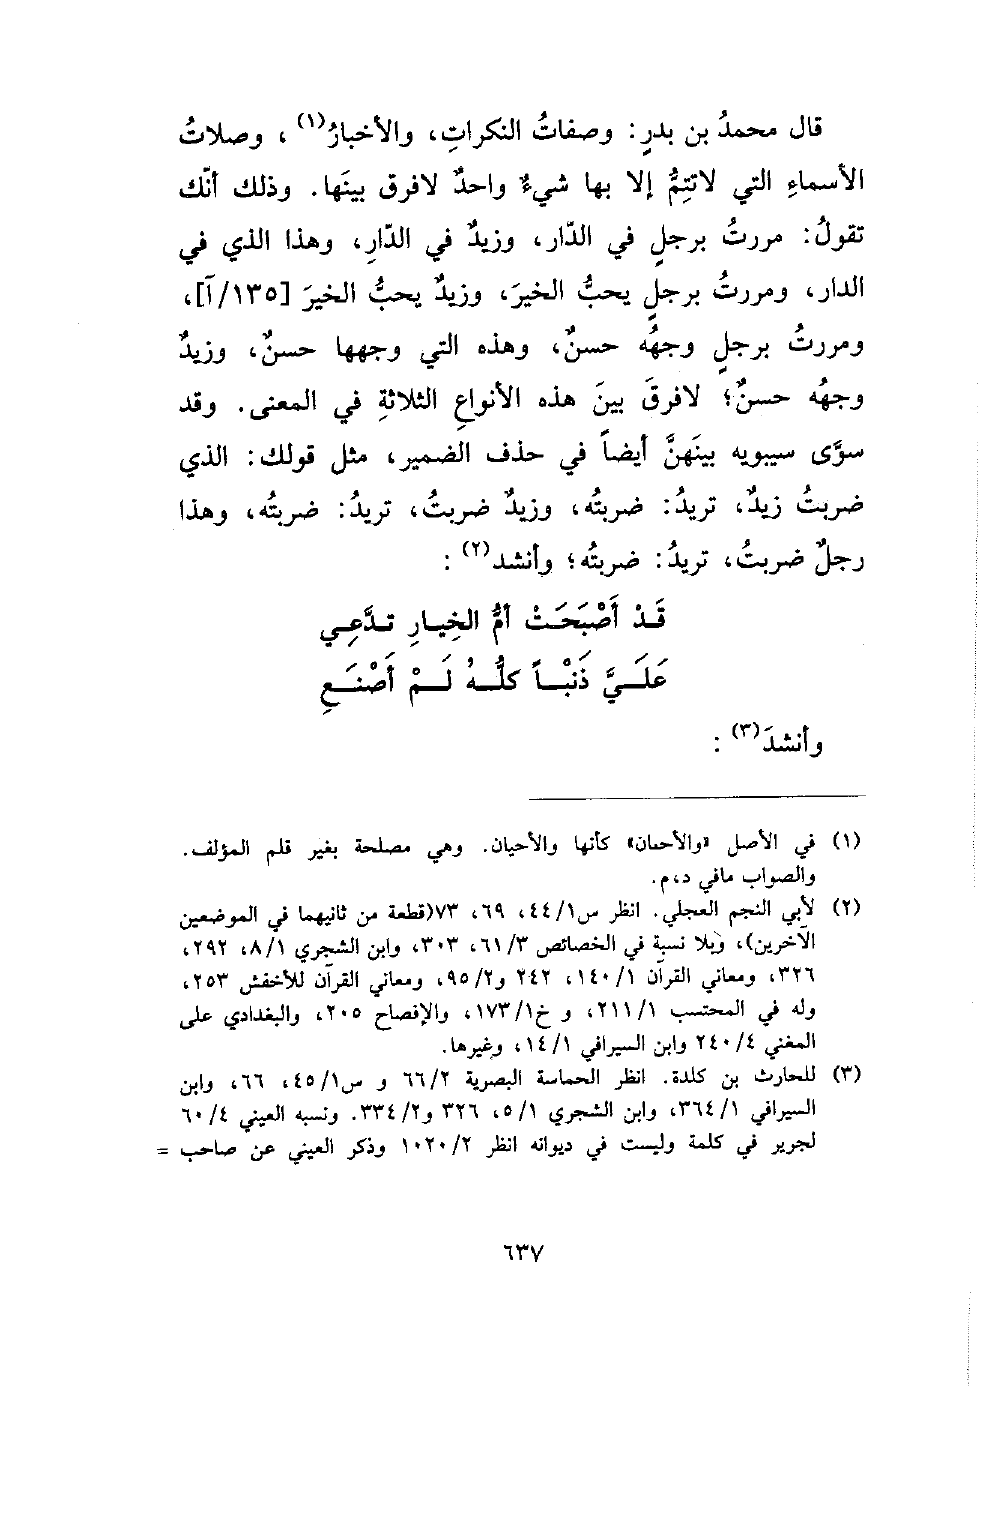 قال محمدُ بن بدرٍ: وصفاتُ النكراتِ، والأخبارُ(١)، وصلاتُ
الأسماءِ التي لاتتِمُّ إلا بها شيءٌ واحدٌ لافرق بينَها. وذلك أنّك
تقولُ: مررتُ برجلٍ في الدّار، وزيدٌ في الدّارِ، وهذا الذي في
الدار، ومررتُ برجلٍ يحبُّ الخيرَ، وزيدٌ يحبُّ الخيرَ [١٣٥/آ]،
ومررتُ برجلٍ وجهُه حسنٌ، وهذه التي وجهها حسنٌ، وزيدٌ
وجهُه حسنٌ؛ لافرقَ بينَ هذه الأنواعِ الثلاثةِ في المعنى. وقد
سوَّى سيبويه بينَهنَّ أيضاً في حذف الضمير، مثل قولك: الذي
ضربتُ زيدٌ، تريدُ: ضربتُه، وزيدٌ ضربتُ، تريدُ: ضربتُه، وهذا
رجلٌ ضربتُ، تريدُ: ضربتُه؛ وأنشد(٢):
قَدْ أَصْبَحَتْ أمُّ الخِيارِ تدَّعِي
عَلَيَّ ذَنْباً كلُّهُ لَمْ أَصْنَعِ
وأنشدَ(٣):
(١) في الأصل «والأحىان» كأنها والأحيان. وهي مصلحة بغير قلم المؤلف.
والصواب مافي د،م.
(٢) لأبي النجم العجلي. انظر س١/٤٤، ٦٩، ٧٣(قطعة من ثانيهما في الموضعين
الآخرين)، وبلا نسبة في الخصائص ٣/٦١، ٣٠٣، وابن الشجري ١/٨، ٢٩٢،
٣٢٦، ومعاني القرآن ١/١٤٠، ٢٤٢ و٢/٩٥، ومعاني القرآن للأخفش ٢٥٣،
وله في المحتسب ١/٢١١، و خ١/١٧٣، والإفصاح ٢٠٥، والبغدادي على
المغني ٤/٢٤٠ وابن السيرافي ١/١٤، وغيرها.
(٣) للحارث بن كلدة. انظر الحماسة البصرية ٢/٦٦ و س١/٤٥، ٦٦، وابن
السيرافي ١/٣٦٤، وابن الشجري ١/٥، ٣٢٦ و٢/٣٣٤. ونسبه العيني ٤/٦٠
لجرير في كلمة وليست في ديوانه انظر ٢/١٠٢٠ وذكر العيني عن صاحب =
٦٣٧